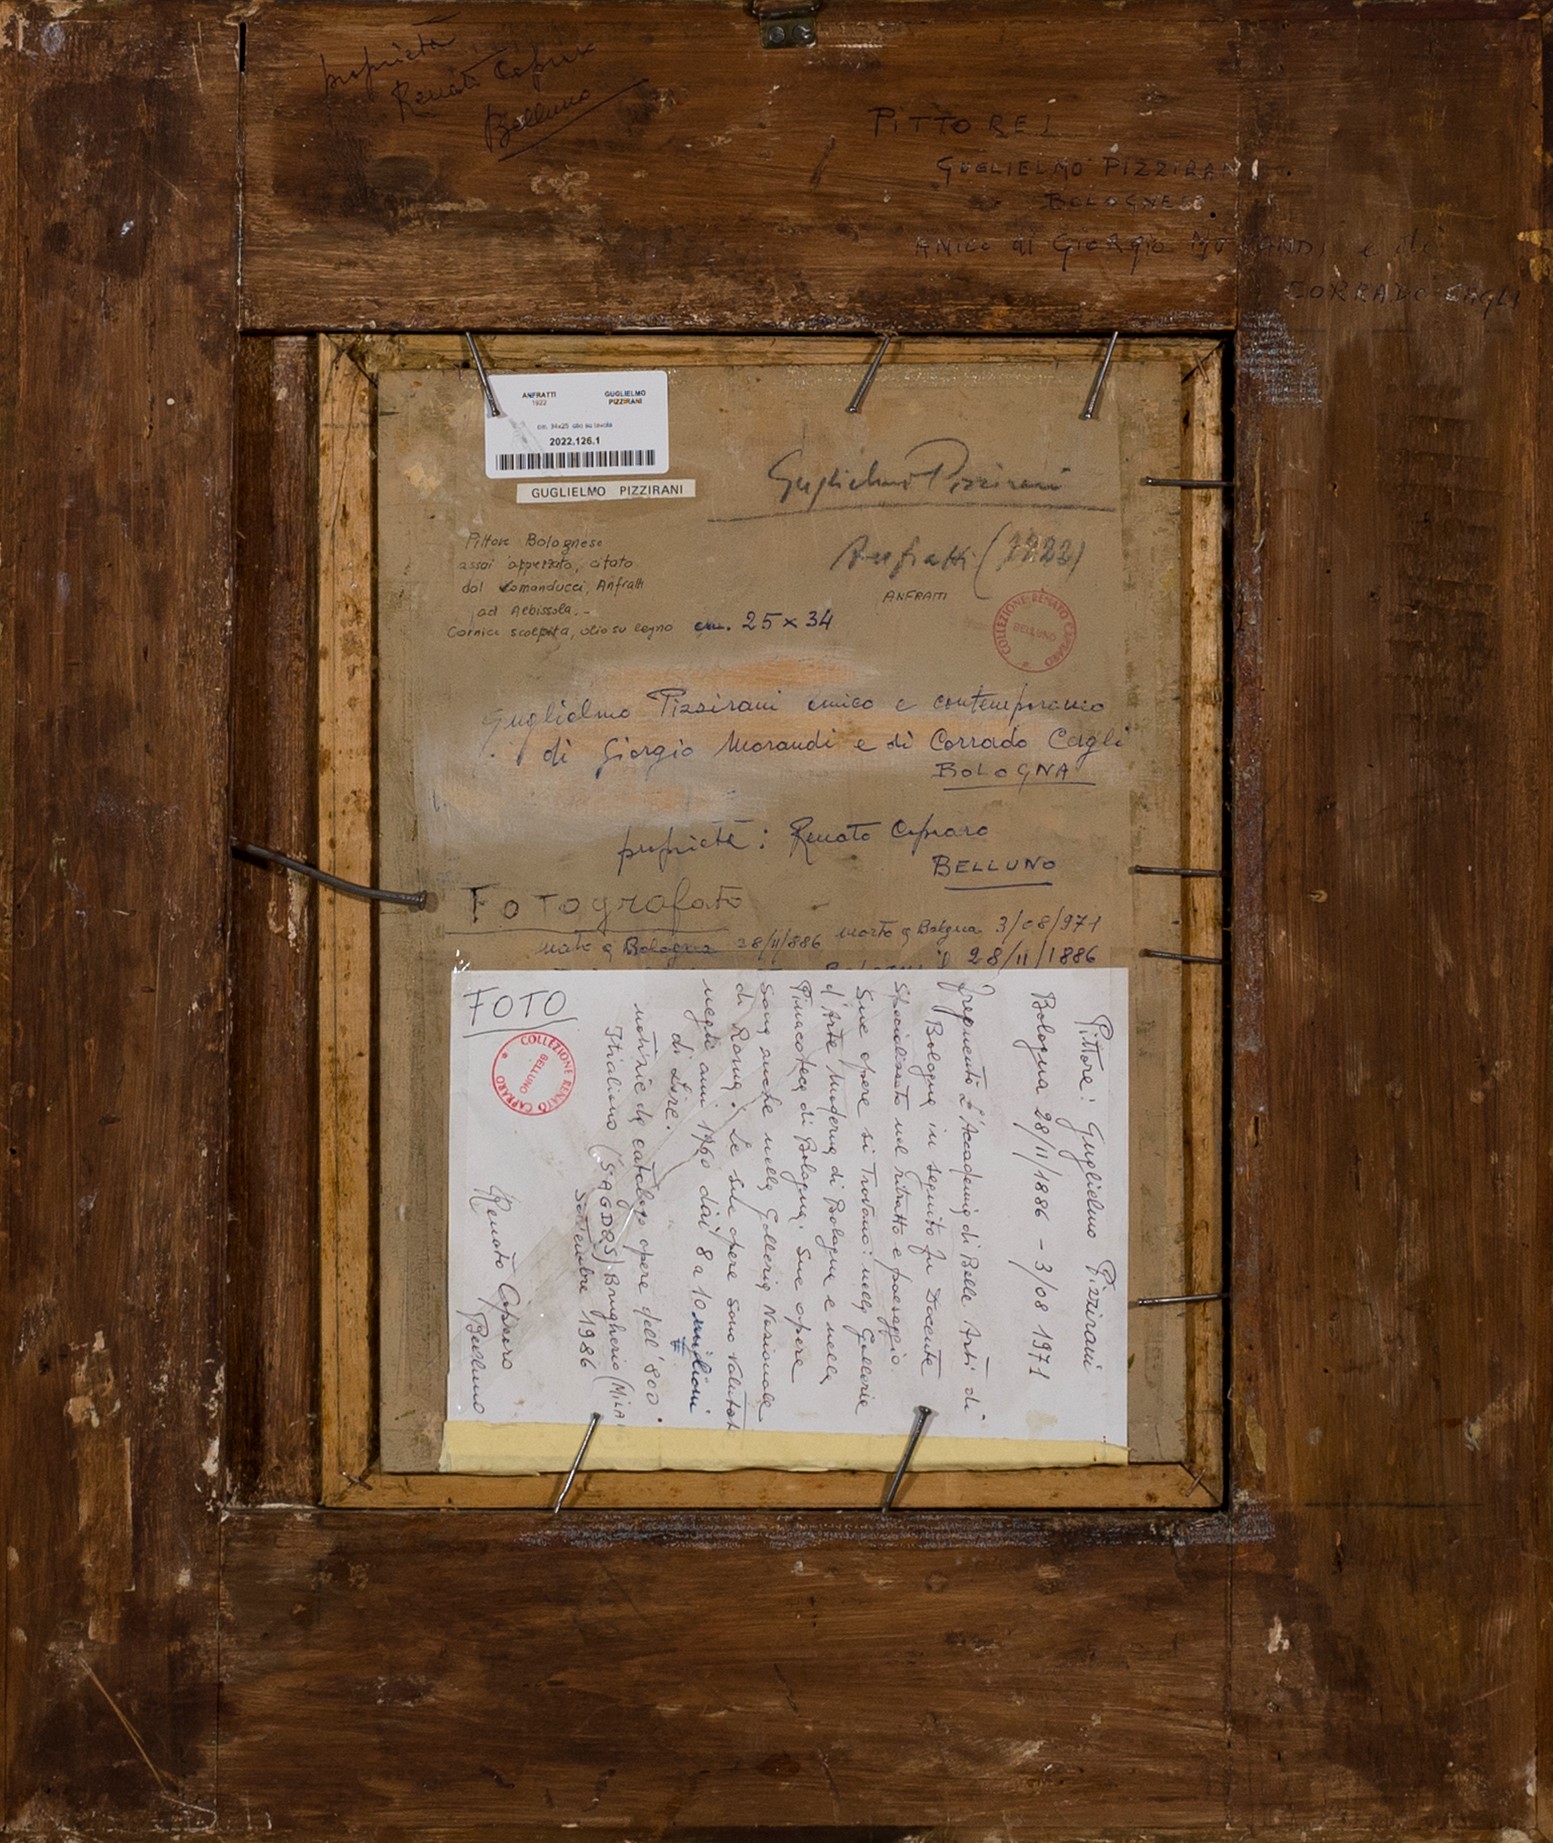 proprietà
Renato Capraro
Belluno
PITTORE
GUGLIELMO PIZZIRANI
BOLOGNESE
AMICO di GIORGIO MORANDI e di
CORRADO CAGLI
ANFRATTI
1922
GUGLIELMO
PIZZIRANI
cm. 34x25 olio su tavola
2022.126.1
GUGLIELMO PIZZIRANI
Guglielmo Pizzirani
Anfratti (1922)
ANFRATTI
Pittore Bolognese
assai apprezzato, citato
dal Comanducci, Anfratti
ad Albissola.-
Cornice scolpita, olio su legno cm. 25 x 34
COLLEZIONE RENATO CAPRARO
BELLUNO
Guglielmo Pizzirani amico e contemporaneo
di Giorgio Morandi e di Corrado Cagli
BOLOGNA
proprietà: Renato Capraro
BELLUNO
FOTOgrafato
nato a Bologna 28/11/886 morto a Bologna 3/08/971
il 28/11/1886
Pittore: Guglielmo Pizzirani
Bologna 28/11/1886 - 3/08 1971
Frequentò L'Accademia di Belle Arti di
Bologna in seguito fu Docente
Specializzato nel ritratto e paesaggio.
Sue opere si Trovano: nella Galleria
d'Arte Moderna di Bologna e nella
Pinacoteca di Bologna. Sue opere
sono anche nella Galleria Nazionale
di Roma. Le sue opere sono valutate
negli anni 1960 dai 8 a 10 milioni
di Lire.
notizie da catalogo opere dell'800
Italiano (SAGDOS) Brugherio (MILA
Settembre 1986
Renato Capraro
Belluno
FOTO
COLLEZIONE RENATO CAPRARO
BELLUNO